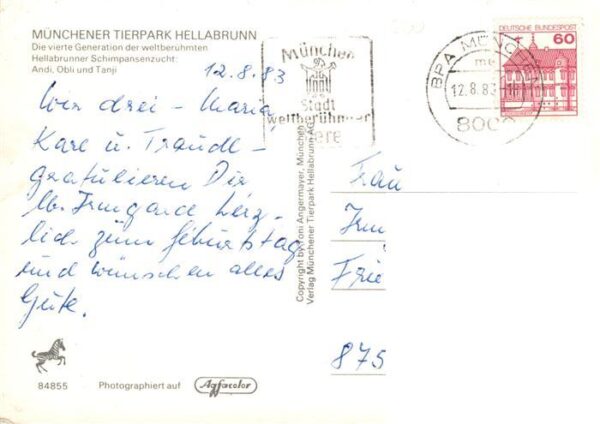 MÜNCHENER TIERPARK HELLABRUNN
Die vierte Generation der weltberühmten
Hellabrunner Schimpansenzucht:
Andi, Obli und Tanji
12.8.83
Wir drei - Maria,
Kare u. Traudl -
gratulieren Dir
lb. Irmgard herz-
lich zum Geburtstag
und wünschen alles
Gute.
84855
Photographiert auf
Agfacolor
Copyright by Toni Angermayer, München
Verlag Münchener Tierpark Hellabrunn AG
München
Stadt
weltberühmter
DEUTSCHE BUNDESPOST
60
BPA MÜNCHEN
12.8.83
8000
Frau
Irm
Frie
875